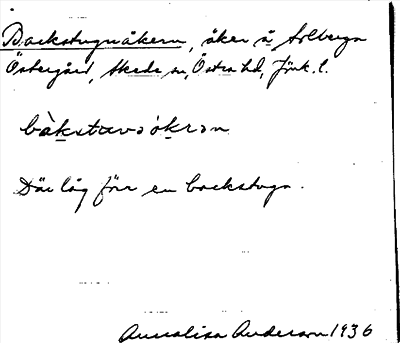 Backstuguåkern, åker å Arlberga
Östergård, Skede sn, Östra hd, Jönk. l.
bàkstuvɔókrɔn
Där låg förr en backstuga.
Annalisa Anderson 1936